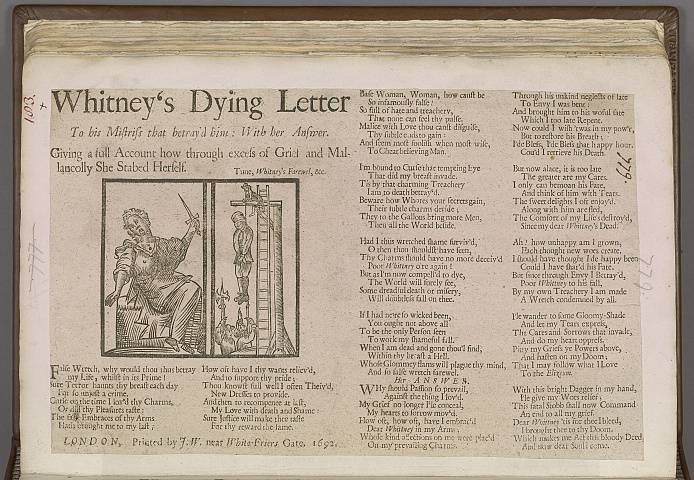 103.
Whitney's Dying Letter
To his Mistriss that betray'd him: With her Answer.
Giving a full Account how through excess of Grief and Mal-
lancolly She Stabed Herself.
Tune, Whitney's Farewel, &c.
False Wretch, why would thou thus betray
my Life, whilst in its Prime!
Sure Terror haunts thy breast each day
For so unjust a crime.
Curse on the time I lov'd thy Charms,
Or did thy Pleasures taste:
The false Embraces of thy Arms
Hath brought me to my last;
How oft have I thy wants reliev'd,
And to support thy pride;
Thou knowst full well I often Theiv'd,
New Dresses to provide.
And then to recompence at last,
My Love with death and Shame:
Sure Justice will make thee taste
For thy reward the same.
Base Woman, Woman, how canst be
So infamously false!
So full of hate and treachery,
That none can feel thy pulse.
Malice with Love thou canst disguise,
Thy subtile ends to gain:
And seem most foolish when most wise,
To Cheat believing Man.
I'm bound to Curse that tempting Eye
That did my breast invade.
Tis by that charming Treachery
I am to death betray'd.
Beware how Whores your secrets gain,
Their subtle charms deride;
They to the Gallous bring more Men,
Then all the World beside.
Had I this wretched shame surviv'd,
O then thou shouldst have seen,
Thy Charms should have no more deceiv'd
Poor Whitney o're again!
But as I'm now compell'd to dye,
The World will surely see,
Some dreadful death or misery,
Will doubtless fall on thee.
If I had nere so wicked been,
You ought not above all
To be the only Person seen
To work my shameful fall.
When I am dead and gone thou'l find,
Within thy breast a Hell.
Whose Glommey flams will plague thy mind,
And so false wretch farewel.
Her ANSWER.
Why should Passion so prevail,
Against the thing I lov'd.
My Grief no longer I'le conceal,
My hearts to sorrow mov'd.
How oft, how oft, have I embrac'd
Dear Whitney in my Arms,
Whose kind affections on me were plac'd
On my prevailing Charms.
Through his unkind neglects of late
To Envy I was bent:
And brought him to his woful fate
Which I too late Repent.
Now could I wish 'twas in my pow'r,
But to restore his Breath;
I'de Bless, I'de Bless that happy hour
Cou'd I retrieve his Death.
But now alace, it is too late
The greater are my Cares.
I only can bemoan his Fate,
And think of him with Tears.
The sweet delights I oft enjoy'd,
Along with him are fled,
The Comfort of my Life's destroy'd,
Since my dear Whitney's Dead.
Ah! how unhappy am I grown,
Each thought new woes create.
I should have thought I'de happy been
Could I have shar'd his Fate.
But since through Envy I Betray'd,
Poor Whitney to his fall,
By my own Treachery I am made
A Wretch condemned by all.
I'le wander to some Gloomy-Shade
And let my Tears express,
The Cares and Sorrows that invade,
And do my heart oppress.
Pitty my Griefs ye Powers above,
And hasten on my Doom;
That I may follow what I Love
To the Elizium.
With this bright Dagger in my Hand,
I'le give my Woes relief;
This fatal Stobb shall now Command
An end to all my grief.
Dear Whitney 'tis for thee I bleed,
I brought thee to thy Doom.
Which makes me Act this bloody Deed
And now dear Soul I come.
LONDON, Printed by J.W. near White-Friers Gate. 1692.
779.
779
777